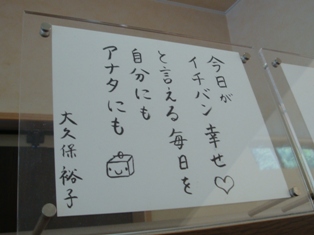 今日が
イチバン幸せ♡
と言える毎日を
自分にも
アナタにも
大久保裕子